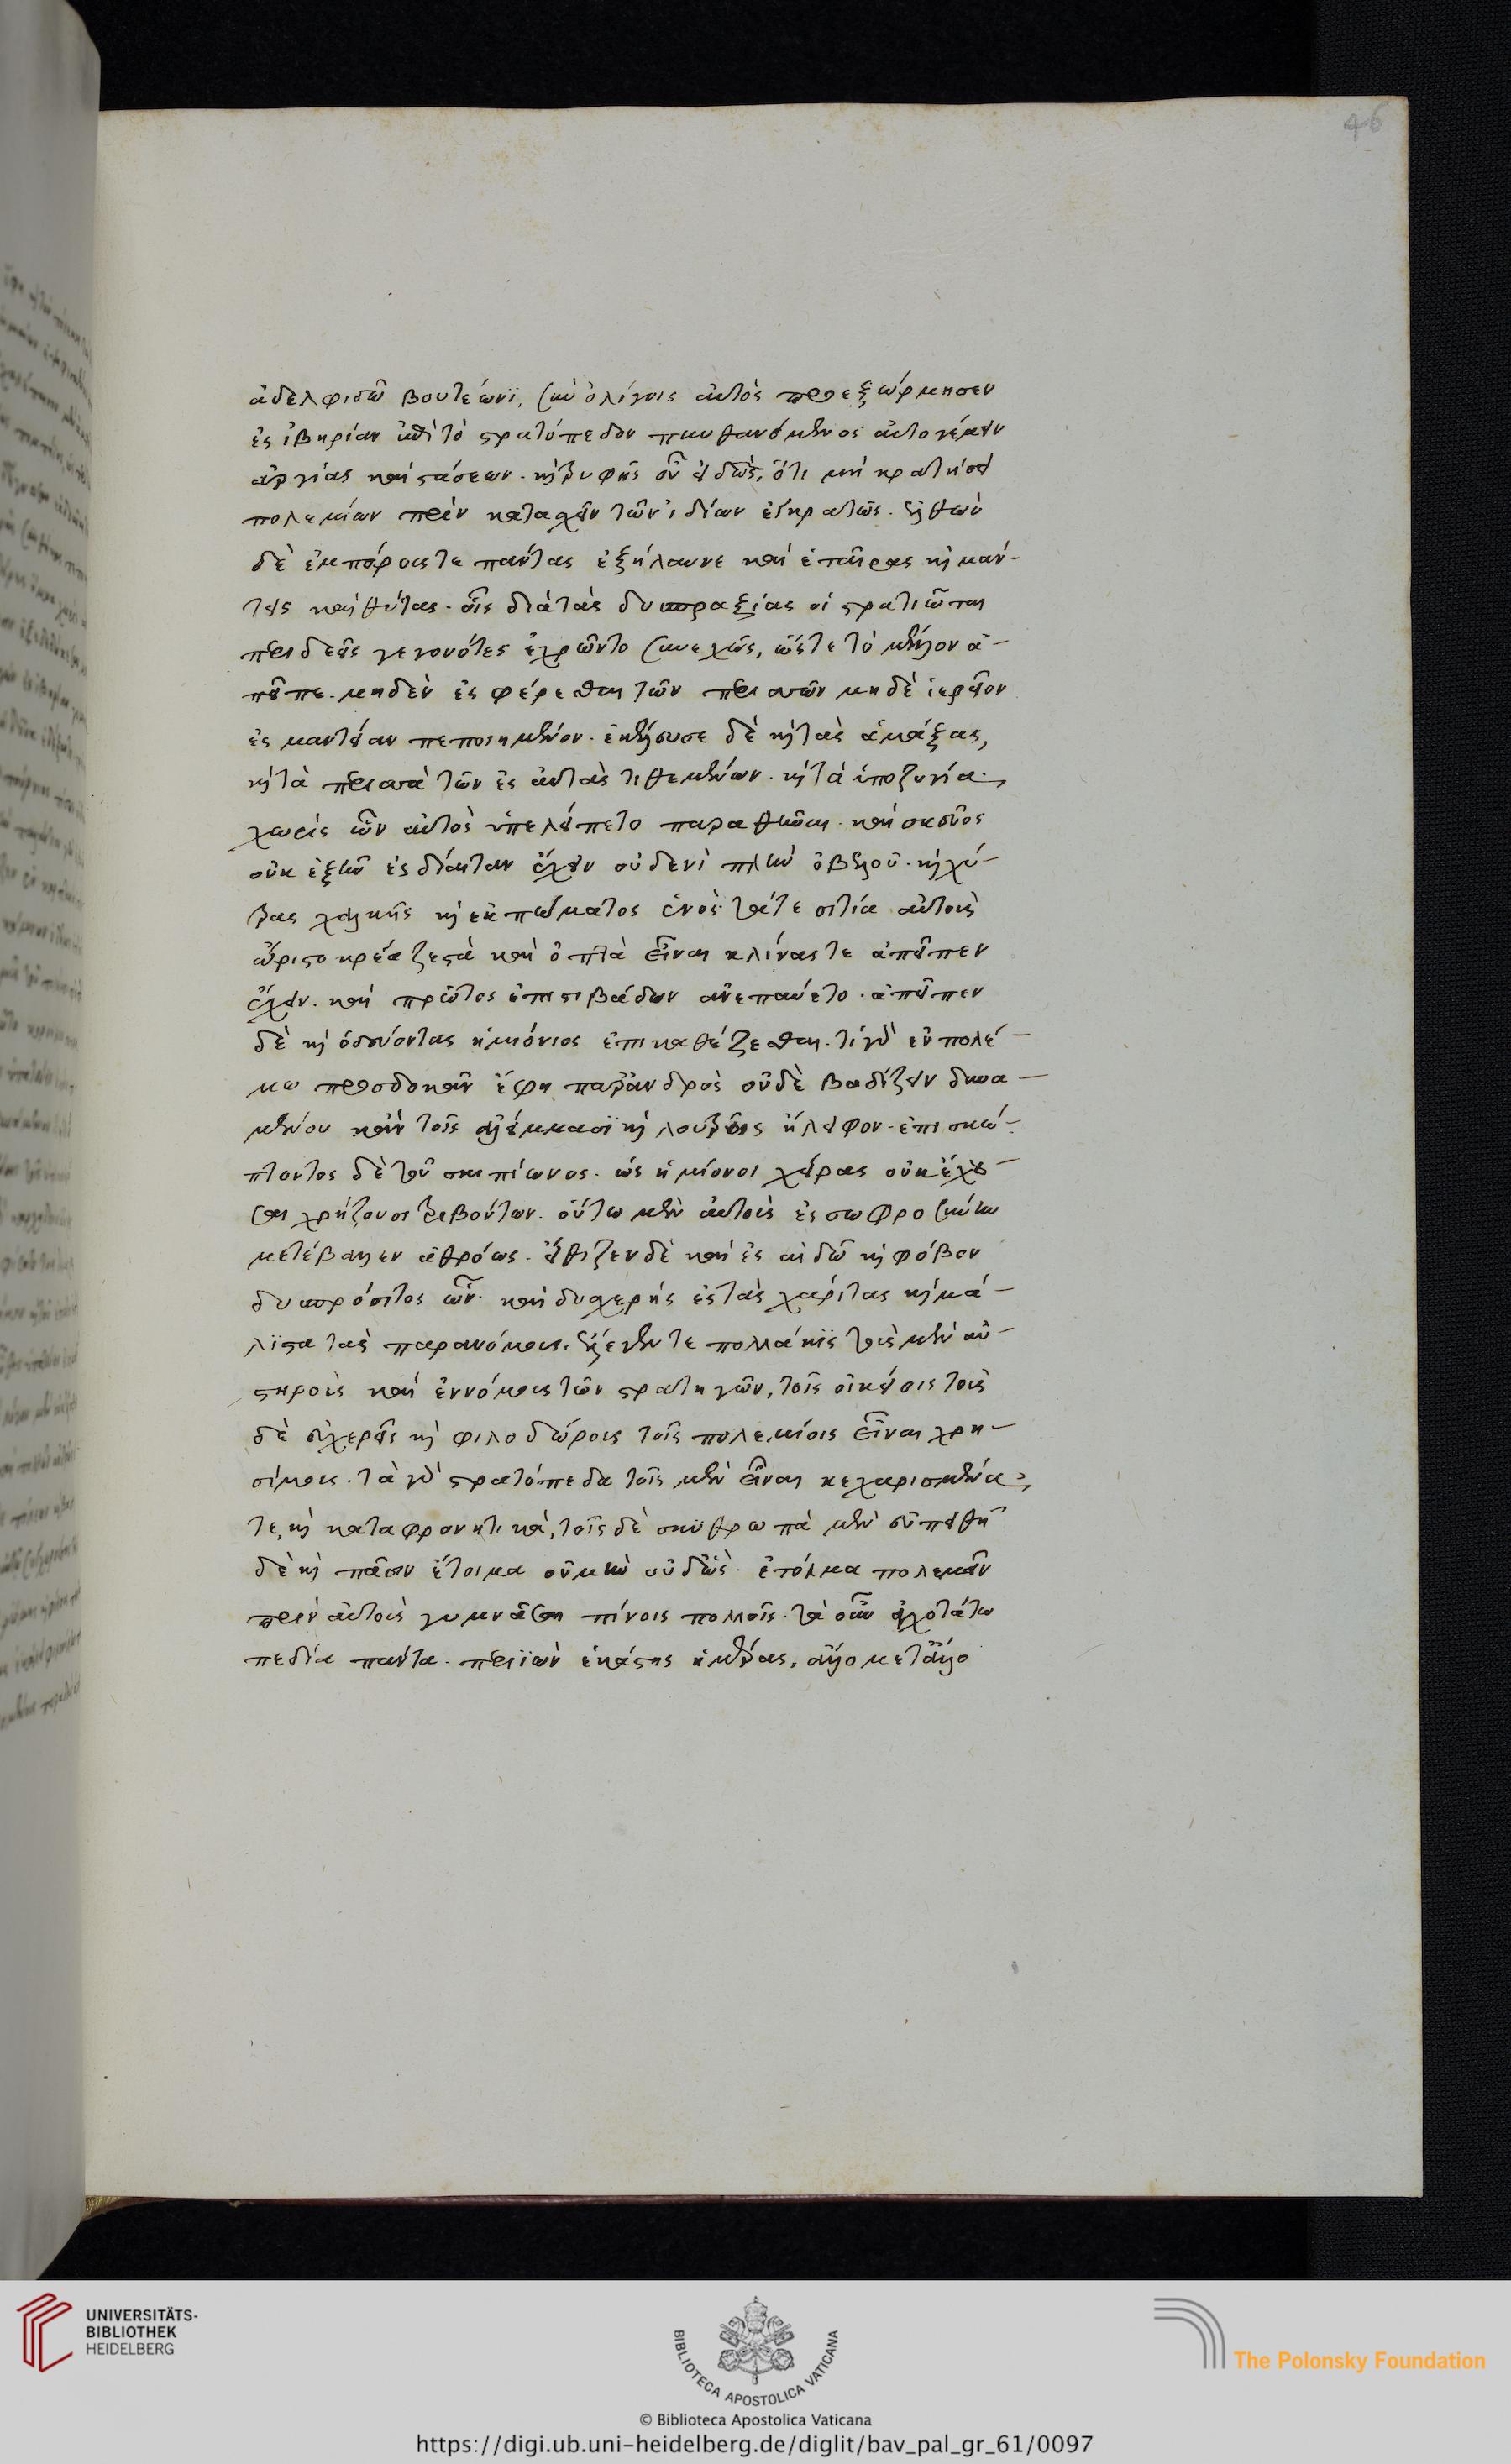 46
ἀδελφιδῶ βουτεώνϊ, σὺν ὀλίγοις αὐτὸς προεξώρμησεν
ἐς ἰβηρίαν ἐπὶ τὸ στρατόπεδον πυνθανόμενος αὐτὸ γέμειν
ἀργίας καὶ στάσεων. καὶ τρυφῆς εὖ εἰδὼς, ὅτι μὴ κρατήσει
πολεμίων πρὶν κατασχεῖν τῶν ἰδίων ἐγκρατῶς. ἐλθὼν
δὲ ἐμπόρους τε πάντας ἐξήλαυνε καὶ ἑταίρας καὶ μάν-
τεις καὶ θύτας. οἷς διὰ τὰς δυσπραξίας οἱ στρατιῶται
περιδεεῖς γεγονότες ἐχρῶντο συνεχῶς, ὥστε τὸ μέλλον ἀ-
πεῖπε. μηδὲν ἐσφέρεσθαι τῶν περισσῶν μηδὲ ἱερεῖον
ἐς μαντείαν πεποιημένον. ἐκέλευσε δὲ καὶ τὰς ἁμάξας,
καὶ τὰ περισσὰ τῶν ἐς αὐτὰς τιθεμένων. καὶ τὰ ὑποζύγια
χωρὶς ὧν αὐτὸς ὑπελείπετο πραθῆναι. καὶ σκεῦος
οὐκ ἐξῆν ἐς δίαιταν ἔχειν οὐδενὶ πλὴν ὀβελοῦ. καὶ χύ-
τρας χαλκῆς καὶ ἐκπώματος ἑνὸς τά τε σιτία αὐτοῖς
ὥριστο κρέα ζεστὰ καὶ ὀπτὰ εἶναι κλίνας τε ἀπεῖπεν
ἔχειν. καὶ πρῶτος ἐπὶ στιβάδων ἀνεπαύετο. ἀπεῖπεν
δὲ καὶ ὁδεύοντας ἡμιόνοις ἐπικαθέζεσθαι. τί γὰρ ἐν πολέ-
μω προσδοκᾶν ἔφη παρ' ἀνδρὸς οὐδὲ βαδίζειν δυνα-
μένου κἀν τοῖς ἀλείμμασϊ καὶ λουτροῖς ἤλειφον. ἐπισκώ-
πτοντος δὲ τοῦ σκιπίωνος. ὡς ἡμίονοι χεῖρας οὐκ ἔχου-
σαι χρήζουσι τριβόντων. οὕτω μὲν αὐτοὺς ἐς σωφροσύνην
μετέβαλλεν ἀθρόως. εἴθιζεν δὲ καὶ ἐς αἰδῶ καὶ φόβον
δυσπρόσιτος ὢν. καὶ δυσχερὴς ἐς τὰς χάριτας καὶ μά-
λϊστα τὰς παρανόμους. ἔλεγέν τε πολλάκϊς τοὺς μὲν αὐ-
στηροὺς καὶ ἐννόμους τῶν στρατηγῶν, τοῖς οἰκείοις τοὺς
δὲ εὐχερεῖς καὶ φιλοδώρους τοῖς πολεμίοις εἶναι χρη-
σίμους. τὰ γὰρ στρατόπεδα τοῖς μὲν εἶναι κεχαρισμένα
τε, καὶ καταφρονητικὰ, τοῖς δὲ σκυθρωπὰ μὲν εὐπειθῆ
δὲ καὶ πᾶσιν ἕτοιμα οὐ μὴν οὐδ' ὡς. ἐτόλμα πολεμεῖν
πρὶν αὐτοὺς γυμνάσαι πόνοις πολλοῖς. τὰ οὖν ἀγχοτάτω
πεδία πάντα. περιϊὼν ἑκάστης ἡμέρας, ἄλλο μετ' ἄλλο
UNIVERSITÄTS-
BIBLIOTHEK
HEIDELBERG
BIBLIOTECA APOSTOLICA VATICANA
The Polonsky Foundation
© Biblioteca Apostolica Vaticana
https://digi.ub.uni-heidelberg.de/diglit/bav_pal_gr_61/0097